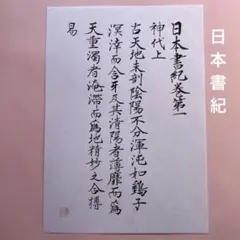 日本書紀巻第一
神代上
古天地未剖陰陽不分渾沌如鶏子
溟涬而含牙及其清陽者薄靡而為
天重濁者淹滞而為地精妙之合摶
易
日本書紀